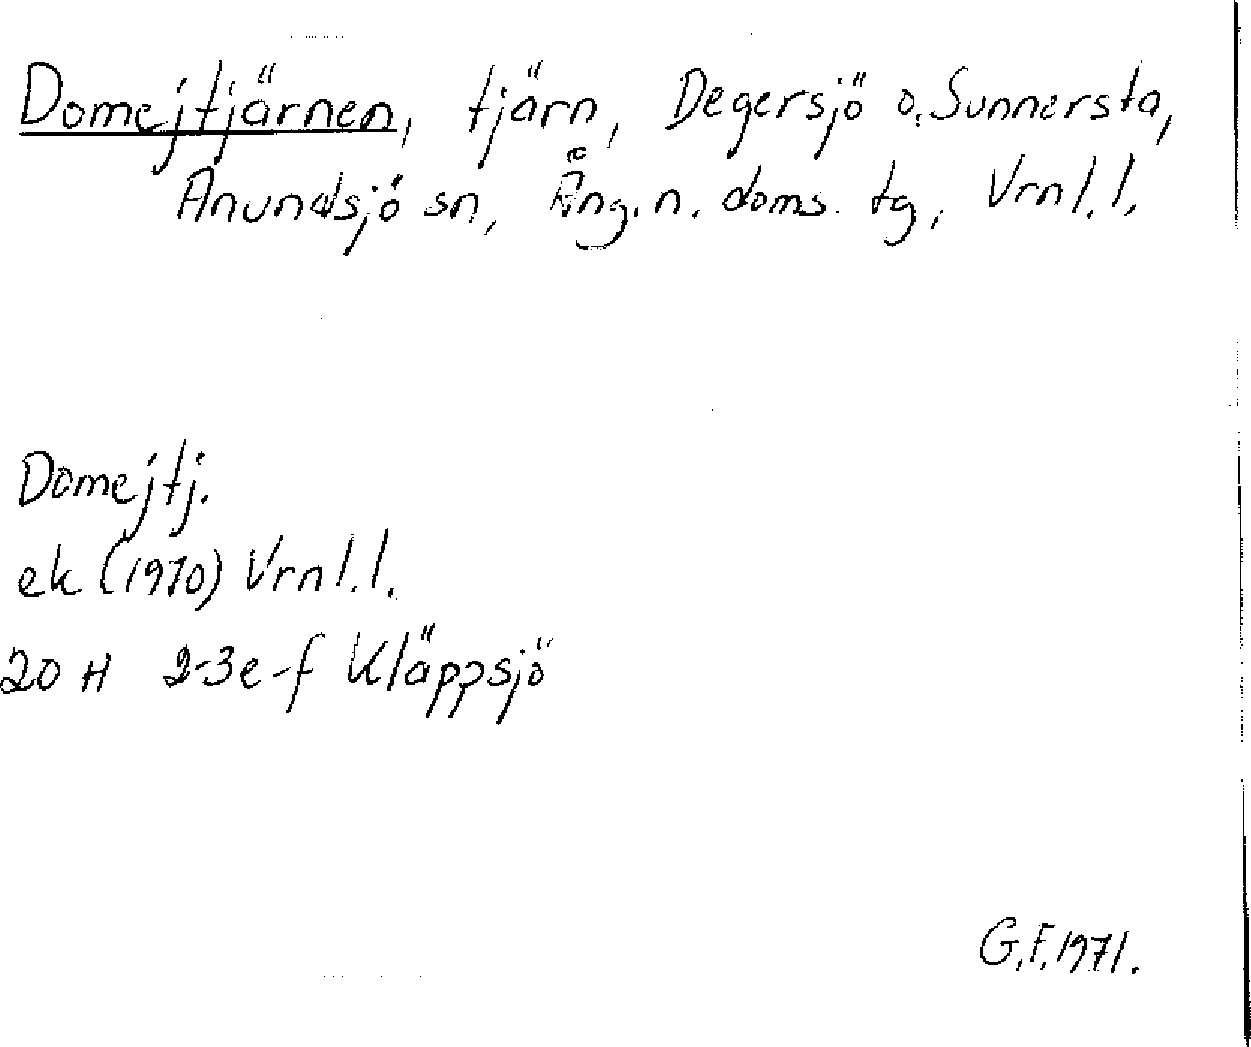 Domejtjärnen, tjärn, Degersjö o. Sunnersta,
Anundsjö sn, Ång. n. doms. tg, Vrnl. l.
Domejtj.
ek (1970) Vrnl. l.
20 H 2-3e-f Kläppsjö
G. F. 1971.